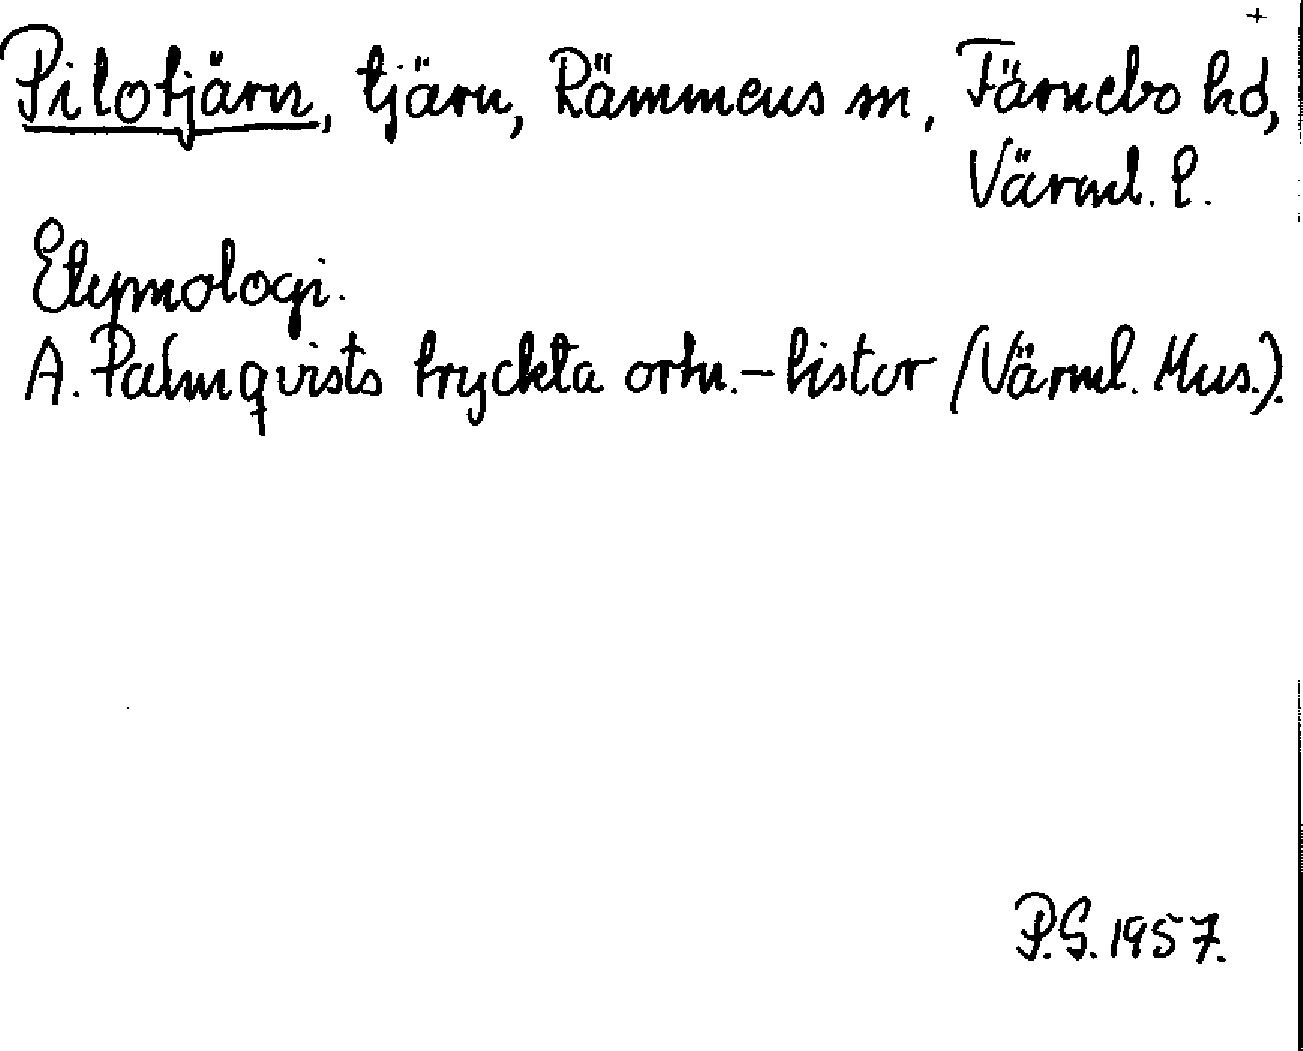 +
Pilotjärn, tjärn, Rämmens sn, Färnebo hd,
Värml. l.
Etymologi.
A. Palmqvists tryckta ortn.-listor (Värml. Mus.).
P.G. 1957.